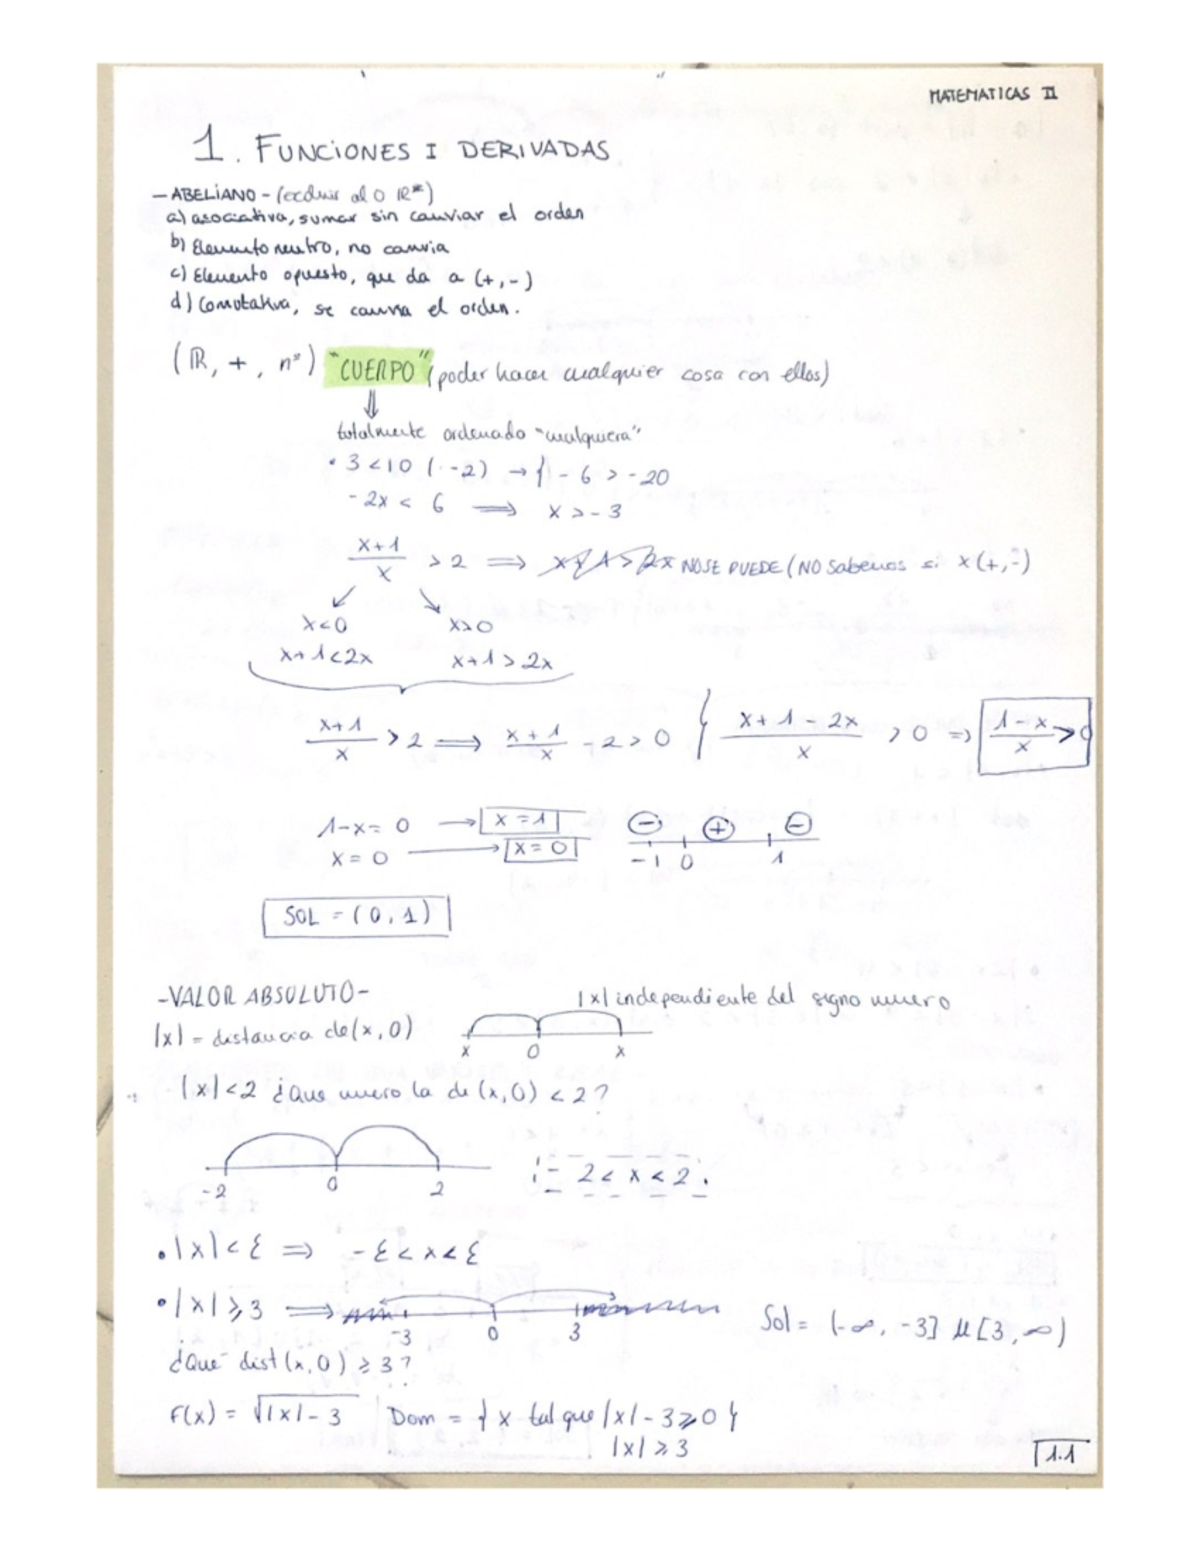 MATEMATICAS II
1. FUNCIONES I DERIVADAS
- ABELIANO - (excluir al 0 R*)
a) asociativa, sumar sin canviar el orden
b) Elemento neutro, no canvia
c) Elemento opuesto, que da a (+,-)
d) Comutativa, se canvia el orden.
(ℝ, +, nº) "CUERPO" (poder hacer cualquier cosa con ellos)
⇓
totalmente ordenado "cualquiera"
• 3 < 10 (· -2) → { - 6 > -20
-2x < 6 ⟹ x > -3
x+1/x > 2 ⟹ x+1 > 2x NO SE PUEDE (NO sabemos si x (+,-)
x<0 x>0
x+1<2x x+1 > 2x
x+1/x > 2 ⟹ x+1/x 2 > 0 { x+1-2x/x > 0 ⇒ 1-x/x > 0
1-x = 0 → x = 1 ⊖ ⊕ ⊖
x = 0 → x = 0 -1 0 1
SOL = (0, 1)
- VALOR ABSOLUTO -
|x| independiente del signo
|x| = distancia de (x, 0)
x 0 x
|x| < 2 ¿Que la de (x, 0) < 2?
-2 0 2 - 2 < x < 2.
• |x| < ε ⟹ - ε < x < ε
• |x| ⩾ 3 ⟹ -3 0 3 Sol = (-∞, -3] u [3, ∞)
¿Que dist (x, 0) ⩾ 3?
F(x) = √|x| - 3 Dom = { x tal que |x| - 3 ⩾ 0 }
|x| ⩾ 3
1.1